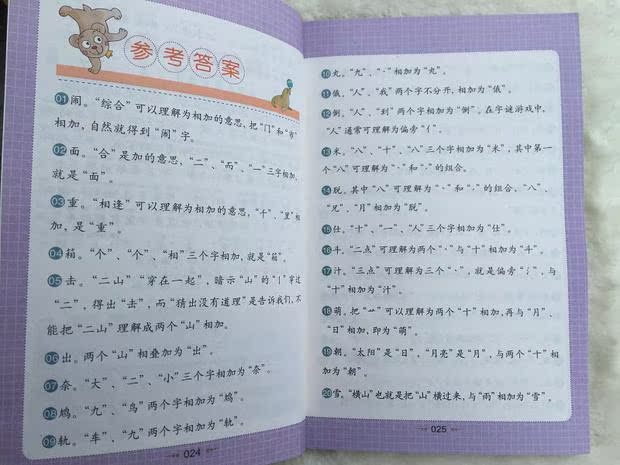 参考答案
01 闹。“综合”可以理解为相加的意思,把“门”和“市”
相加,自然就得到“闹”字。
02 面。“合”是加的意思,“二”、“而”、“一”三字相加,
就是“面”。
03 重。“相逢”可以理解为相加的意思,“千”、“里”相
加,是“重”。
04 箱。“个”、“个”、“相”三个字相加,就是“箱”。
05 击。“二山”“穿在一起”,暗示“山”的“丨”穿过
“二”,得出“击”,而“猜出没有道理”是告诉我们,不
能把“二山”理解成两个“山”相加。
06 出。两个“山”相叠加为“出”。
07 奈。“大”、“二”、“小”三个字相加为“奈”。
08 鸠。“九”、“鸟”两个字相加为“鸠”。
09 轨。“车”、“九”两个字相加为“轨”。
024
10 丸。“九”、“丶”相加为“丸”。
11 俄。“人”、“我”两个字不分开,相加为“俄”。
12 倒。“人”、“到”两个字相加为“倒”。在字谜游戏中,
“人”通常可理解为偏旁“亻”。
13 米。“八”、“十”、“八”三个字相加为“米”,其中第一
个“八”可理解为“丶”和“丿”的组合。
14 脱。其中“八”可理解为“丶”和“丿”的组合。“八”、
“兄”、“月”相加为“脱”。
15 仕。“十”、“一”、“人”三个字相加为“仕”。
16 斗。“二点”可理解为两个“丶”与“十”相加为“斗”。
17 汁。“三点”可理解为三个“丶”,就是偏旁“氵”,与
“十”相加为“汁”。
18 萌。把“艹”可以理解为两个“十”相加,再与“月”、
“日”相加,即为“萌”。
19 朝。“太阳”是“日”,“月亮”是“月”,与两个“十”相
加为“朝”。
20 雪。“横山”也就是把“山”横过来,与“雨”相加为“雪”。
025